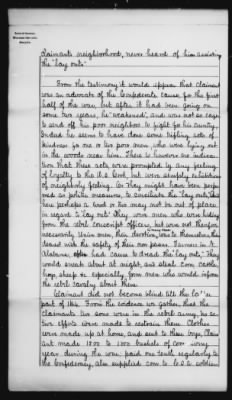 claimants neighborhood, never heard of him assisting
the "lay outs".
From the testimony it would appear that Claimant
was an advocate of the Confederate cause, for the first
half of the war, but after it had been going on
some two years, he "weakened", and was not so eager
to send off his poor neighbors to fight for his county.
Indeed he seems to have done some trifling acts of
kindness for one or two poor men, who were lying out
in the woods near him. There is however no indica-
tion that these acts were prompted by any feeling
of loyalty to the U.S. Govt, but were simply
of neighborly feeling. Or they might have been perfor
med as politic measures, to conciliate the "lay outs", and
here perhaps a word or two may not be out of place
in regard to "lay outs" They were men who were hiding
from the rebel conscript officers, but were not therefore
necessarily Union men, their devotion was to themselves
with the safety of their own persons. Farmers in N.
Alabama, often had cause to dread the "lay outs," They
would sneak about at night, and steal corn, cattle,
hogs, sheep & especially from men who would inform
the rebel cavalry about them.
Claimant did not become blind till the
part of 1864. From the evidence we gather, that the
claimants two sons were in the rebel army, no ac-
tive efforts were made to restrain them. Clothes
were made up at home, and sent to these boys, Claim
ant made 1000 to 1200 bushels of corn every
year during the war, paid one tenth regularly to
the Confederacy, also supplied corn to C.S. soldiers